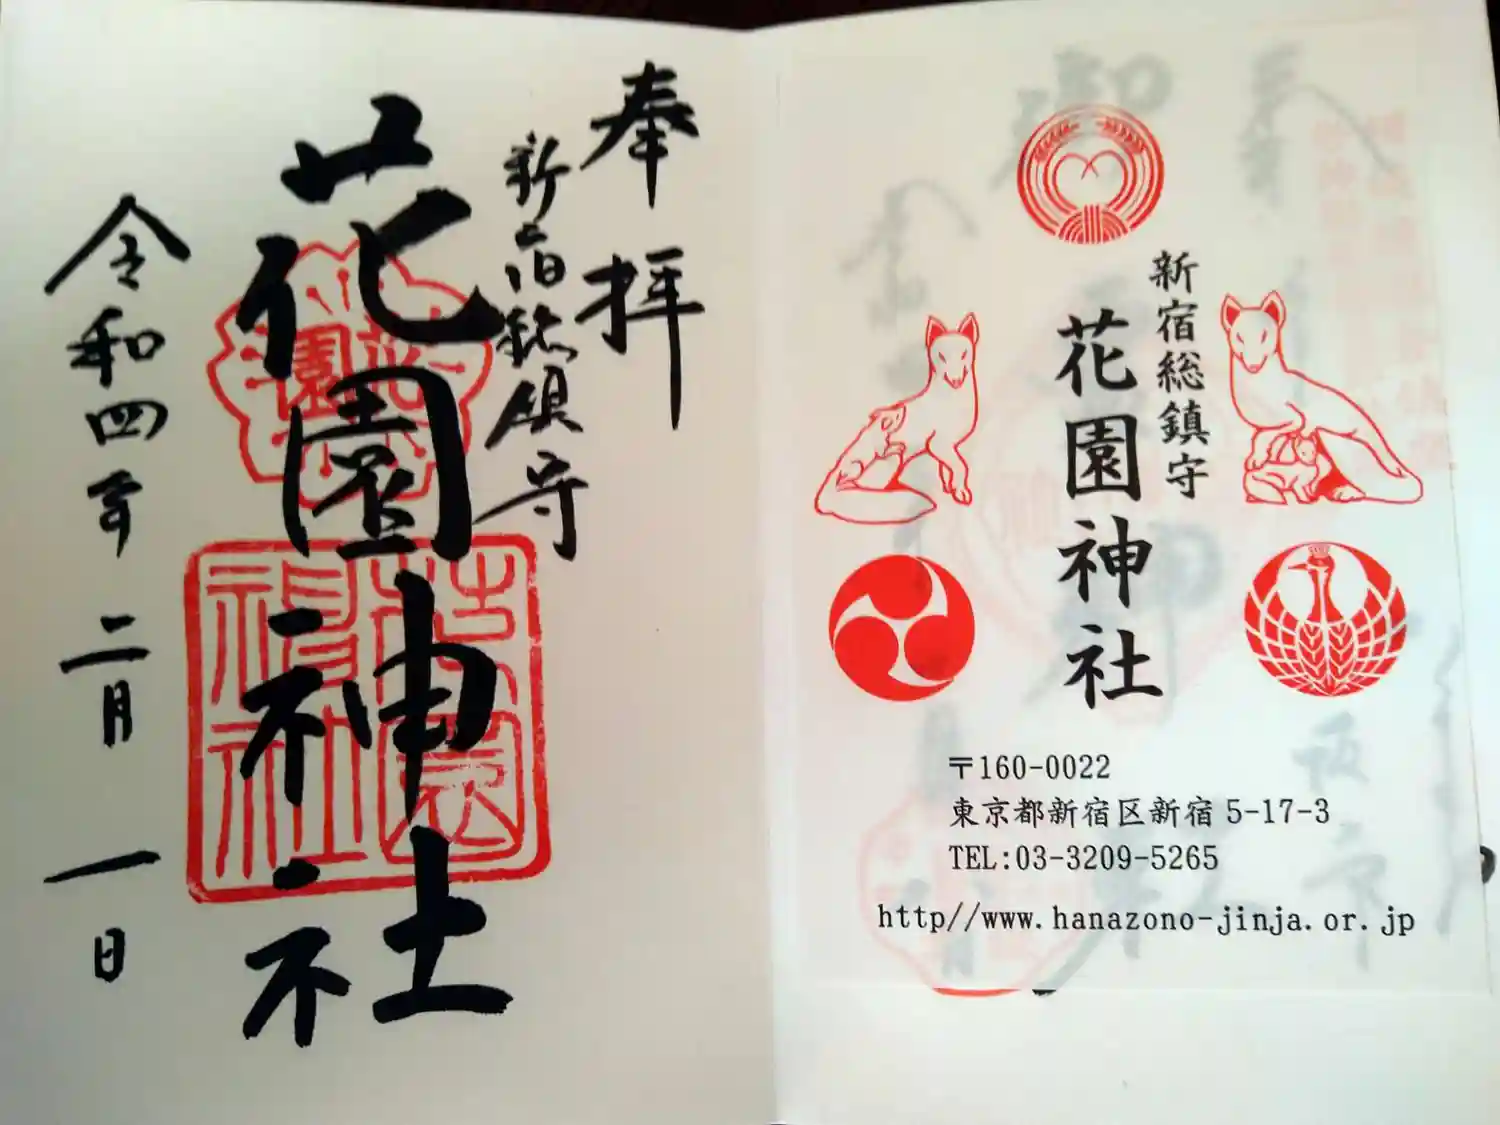 奉拝
新宿総鎮守
花園神社
令和四年二月一日
花園
花園神社
新宿総鎮守
花園神社
〒160-0022
東京都新宿区新宿5-17-3
TEL:03-3209-5265
http//www.hanazono-jinja.or.jp